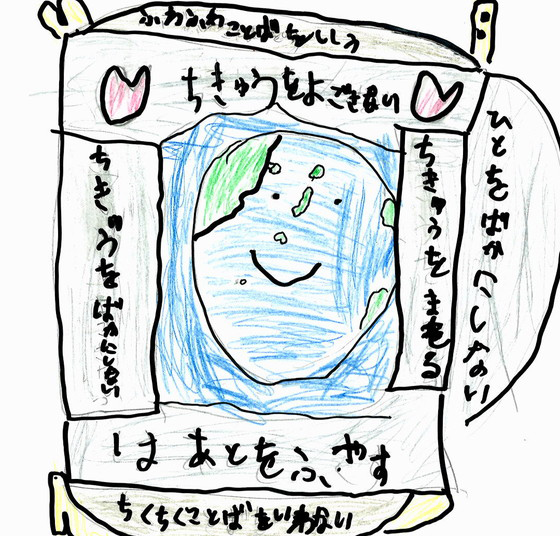 ふわふわことばをいう
ちきゅうをよごさない
ひとをばかにしない
ちきゅうをまもる
ちきゅうをばかにしない
はあとをふやす
ちくちくことばをいわない